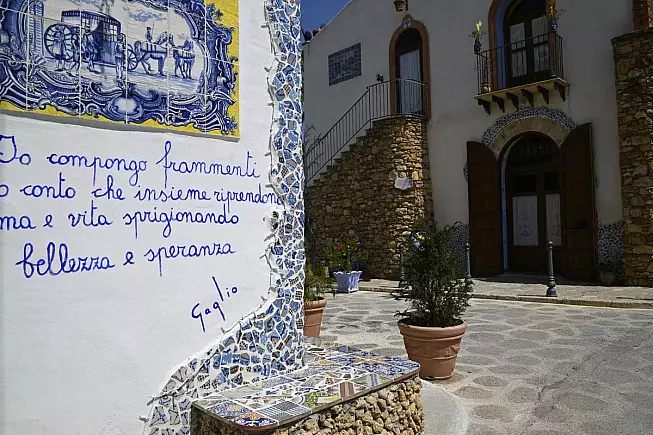 Io compongo frammenti
o conto che insieme riprendono
ma e vita sprigionando
bellezza e speranza
Gaglio